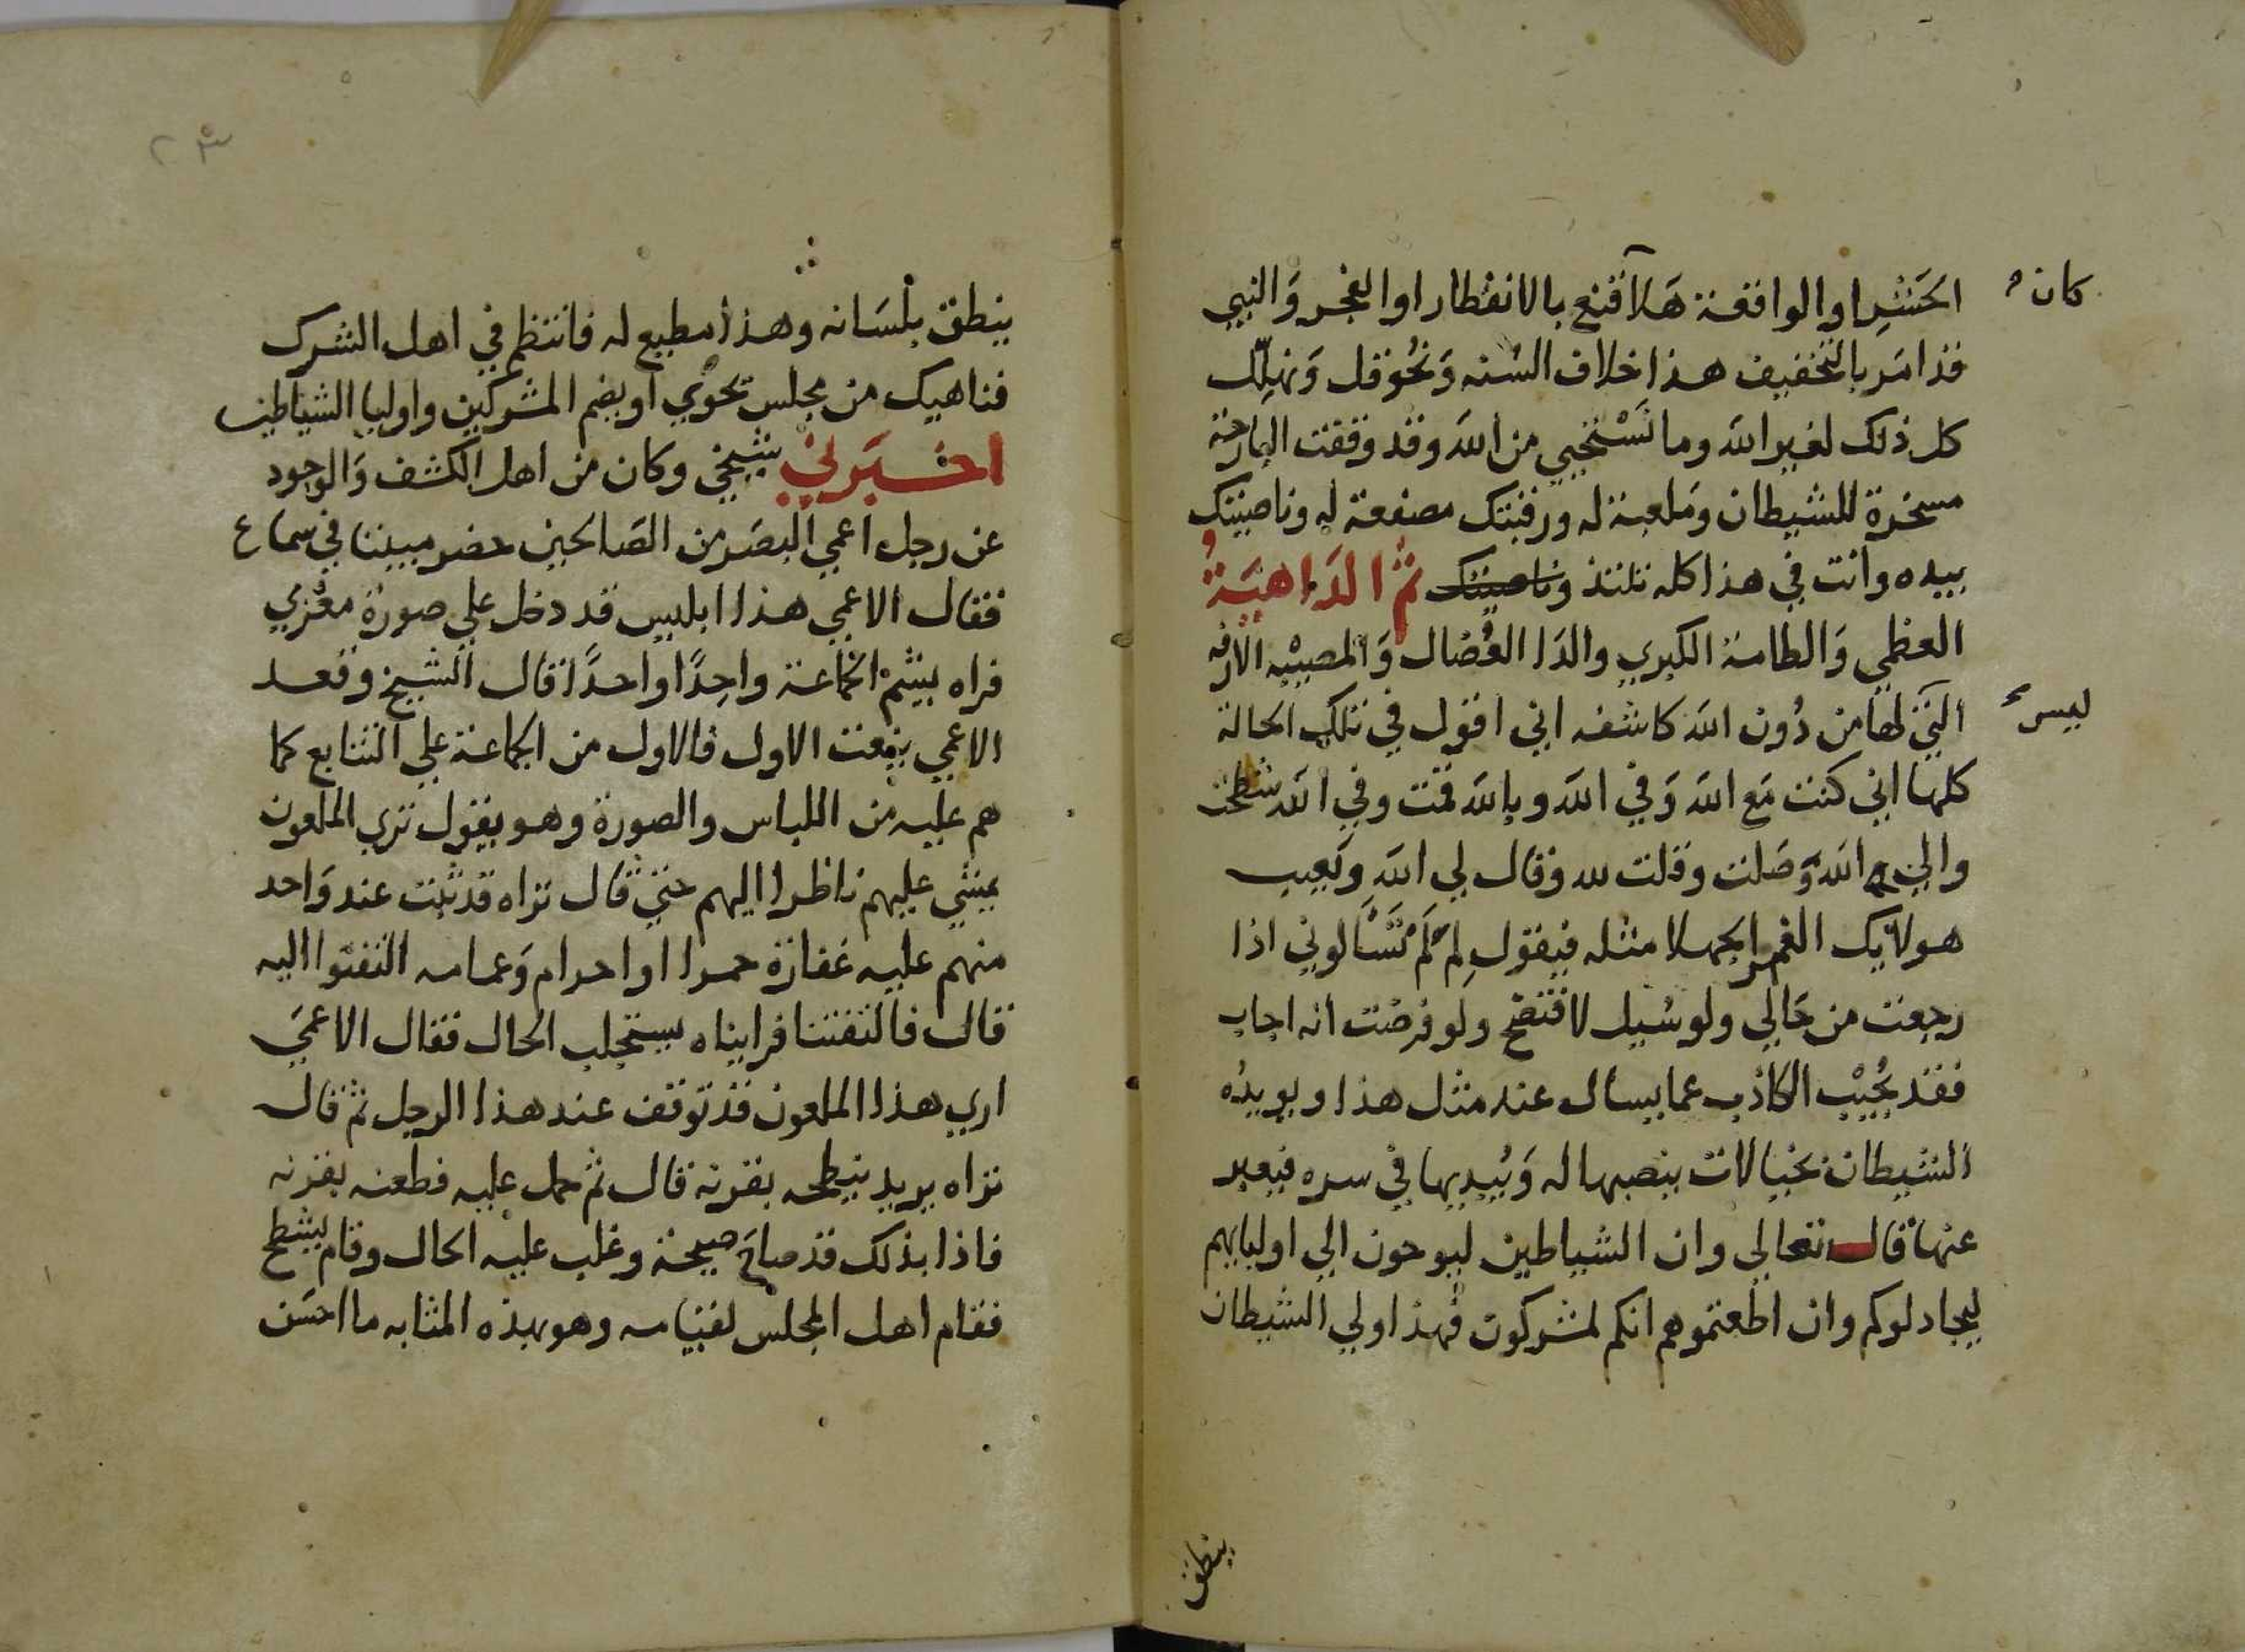 الحَشرِ او الواقعة هَلّا قنع بالانفطار او الفجر وَالنبي
كان
قد امَر بالتخفيف هذا خلاف السُنه وَنُحوقل وَنهلّل
كل ذلك لغير الله وما نَسْتحيي من الله وقد وقفت البارحة
مسخرة للشيطان وَملعبة له ورقبتك مصفعة له وناصيتك
بيده وانت في هذا كله تلتذ وناصيتك ثم الدَاهيَةُ
العظمي وَالطامة الكبري والدَا العُضال وَالمصيبْه الازفه
التي لهَا من دُون الله كاشفه اني اقول في تلك الحالة
ليس
كلها اني كنت مَع الله وَفي الله وبالله قمت وفي الله شطحت
والي الله وَصَلت وقلت لله وقال لي الله وَيَعيب
هولايك الغمر الجهلا مثله فيقول لِمَ لَمْ تَسْالوني اذا
رجعت من حَالي ولو سُيل لافتضح ولو فرضت انه اجاب
فقد يُجيْب الكاذب عما يسال عنه مثل هذا ويويدُه
الشيطان بخيالات ينصبها له وَيُبديها في سره فيعبر
عنها قال تعالي وان الشياطين ليوحون الي اوليايهم
ليجادلوكم وان اطعتموهم انكم لمشركون فهذا ولي الشيطان
ينطق
٢٣
ينطق بلسَانه وهذا مطيع له فانتظم في اهل الشرك
فناهيك من مجلس تحوي او يضم المشركين واوليا الشياطين
اخبَرني شيخي وكان من اهل الكشف وَالوجود
عن رجل اعمي البصَر من الصَالحين حضر مبيتا في سماع
فقال الاعمي هذا ابليس قد دخل علي صورة معْزي
فراه يشم الجماعة واحِدًا واحدًا قال الشيخ وقعد
الاعمي ينعت الاول فالاول من الجماعة علي التتابع كما
هم عليه من اللباس والصورة وهو يقول تري الملعون
يمشي عليهم ناظرا اليهم حتي قال تراه قد ثبت عند وَاحد
منهم عليه غفارة حمرا او احرام وَعمامه التفتوا اليه
قال فالتفتنا فرايناه يستجلب الحال فقال الاعمَي
اري هذا الملعون قد توقف عند هذا الرجل ثم قال
تراه يريد ينطحه بقرنه قال ثم حمل عليه فطعنه بقرنه
فاذا بذلك قد صاحَ صيحة وغلب عليه الحال وقام يشطح
فقام اهل المجلس لقيامه وهو بهذه المثابه ما احسَن